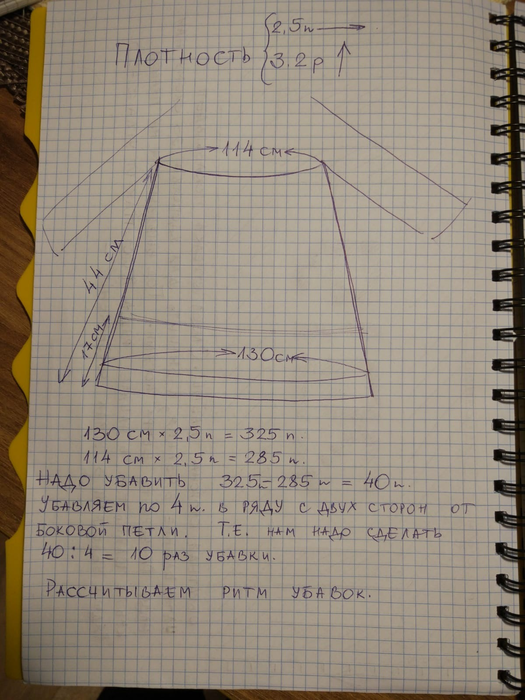 ПЛОТНОСТЬ
2,5п
3.2р
114 см
44 см
17 см
130см
130 см × 2,5п = 325 п.
114 см × 2,5п = 285 п.
НАДО УБАВИТЬ 325-285п = 40п.
УБАВЛЯЕМ ПО 4п. В РЯДУ С ДВУХ СТОРОН ОТ
БОКОВОЙ ПЕТЛИ. Т.Е. НАМ НАДО СДЕЛАТЬ
40 : 4 = 10 РАЗ УБАВКИ.
РАССЧИТЫВАЕМ РИТМ УБАВОК.